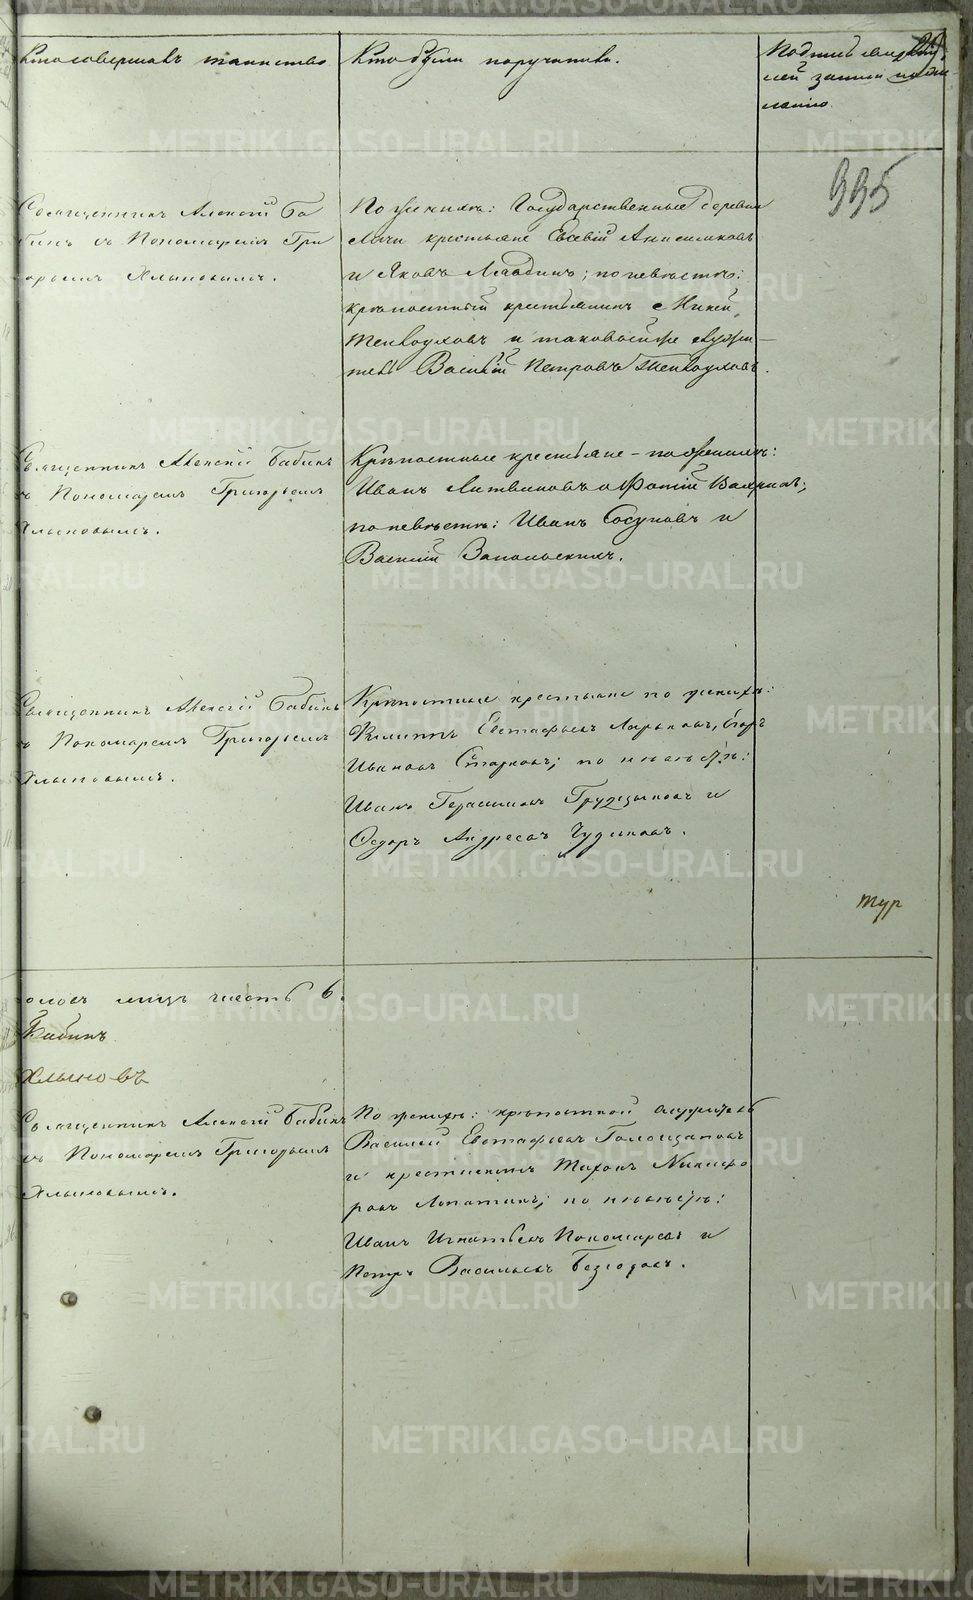 Кто совершалъ таинство
Кто были поручители.
Подпись свидѣте
лей записи по же
ланію.
995
Священникъ Алексій Ба
бинъ съ Пономаремъ Гри
горьемъ Хлыновымъ.
По женихѣ: Государственные деревни
крестьяне Евсевій Анисимовъ
и Яковъ; по невѣстѣ:
крѣпостный крестьянинъ
и таковой же служи-
тель Василій Петровъ
Священникъ Алексій Бабинъ
съ Пономаремъ Григорьемъ
Хлыновымъ.
Крѣпостные крестьяне – по женихѣ:
Иванъ Литвиновъ и Фотій
по невѣстѣ: Иванъ Сосуновъ и
Василій Запольскихъ.
Священникъ Алексій Бабинъ
съ Пономаремъ Григорьемъ
Хлыновымъ.
Крѣпостные крестьяне по женихѣ:
Евстафьевъ Егоръ
Ивановъ Старковъ; по невѣстѣ:
Иванъ Герасимовъ Груздиновъ и
Ѳедоръ Андреевъ Чудиновъ.
тур
числъ 6.
Бабинъ
Хлыновъ
Священникъ Алексій Бабинъ
съ Пономаремъ Григорьемъ
Хлыновымъ.
По женихѣ: крѣпостной служитель
Василій Евстафьевъ Голощаповъ
и крестьянинъ Тихонъ Никифо
ровъ Лопатинъ; по невѣстѣ:
Иванъ Игнатьевъ Пономаревъ и
Петръ Васильевъ Безгодовъ.
METRIKI.GASO-URAL.RU